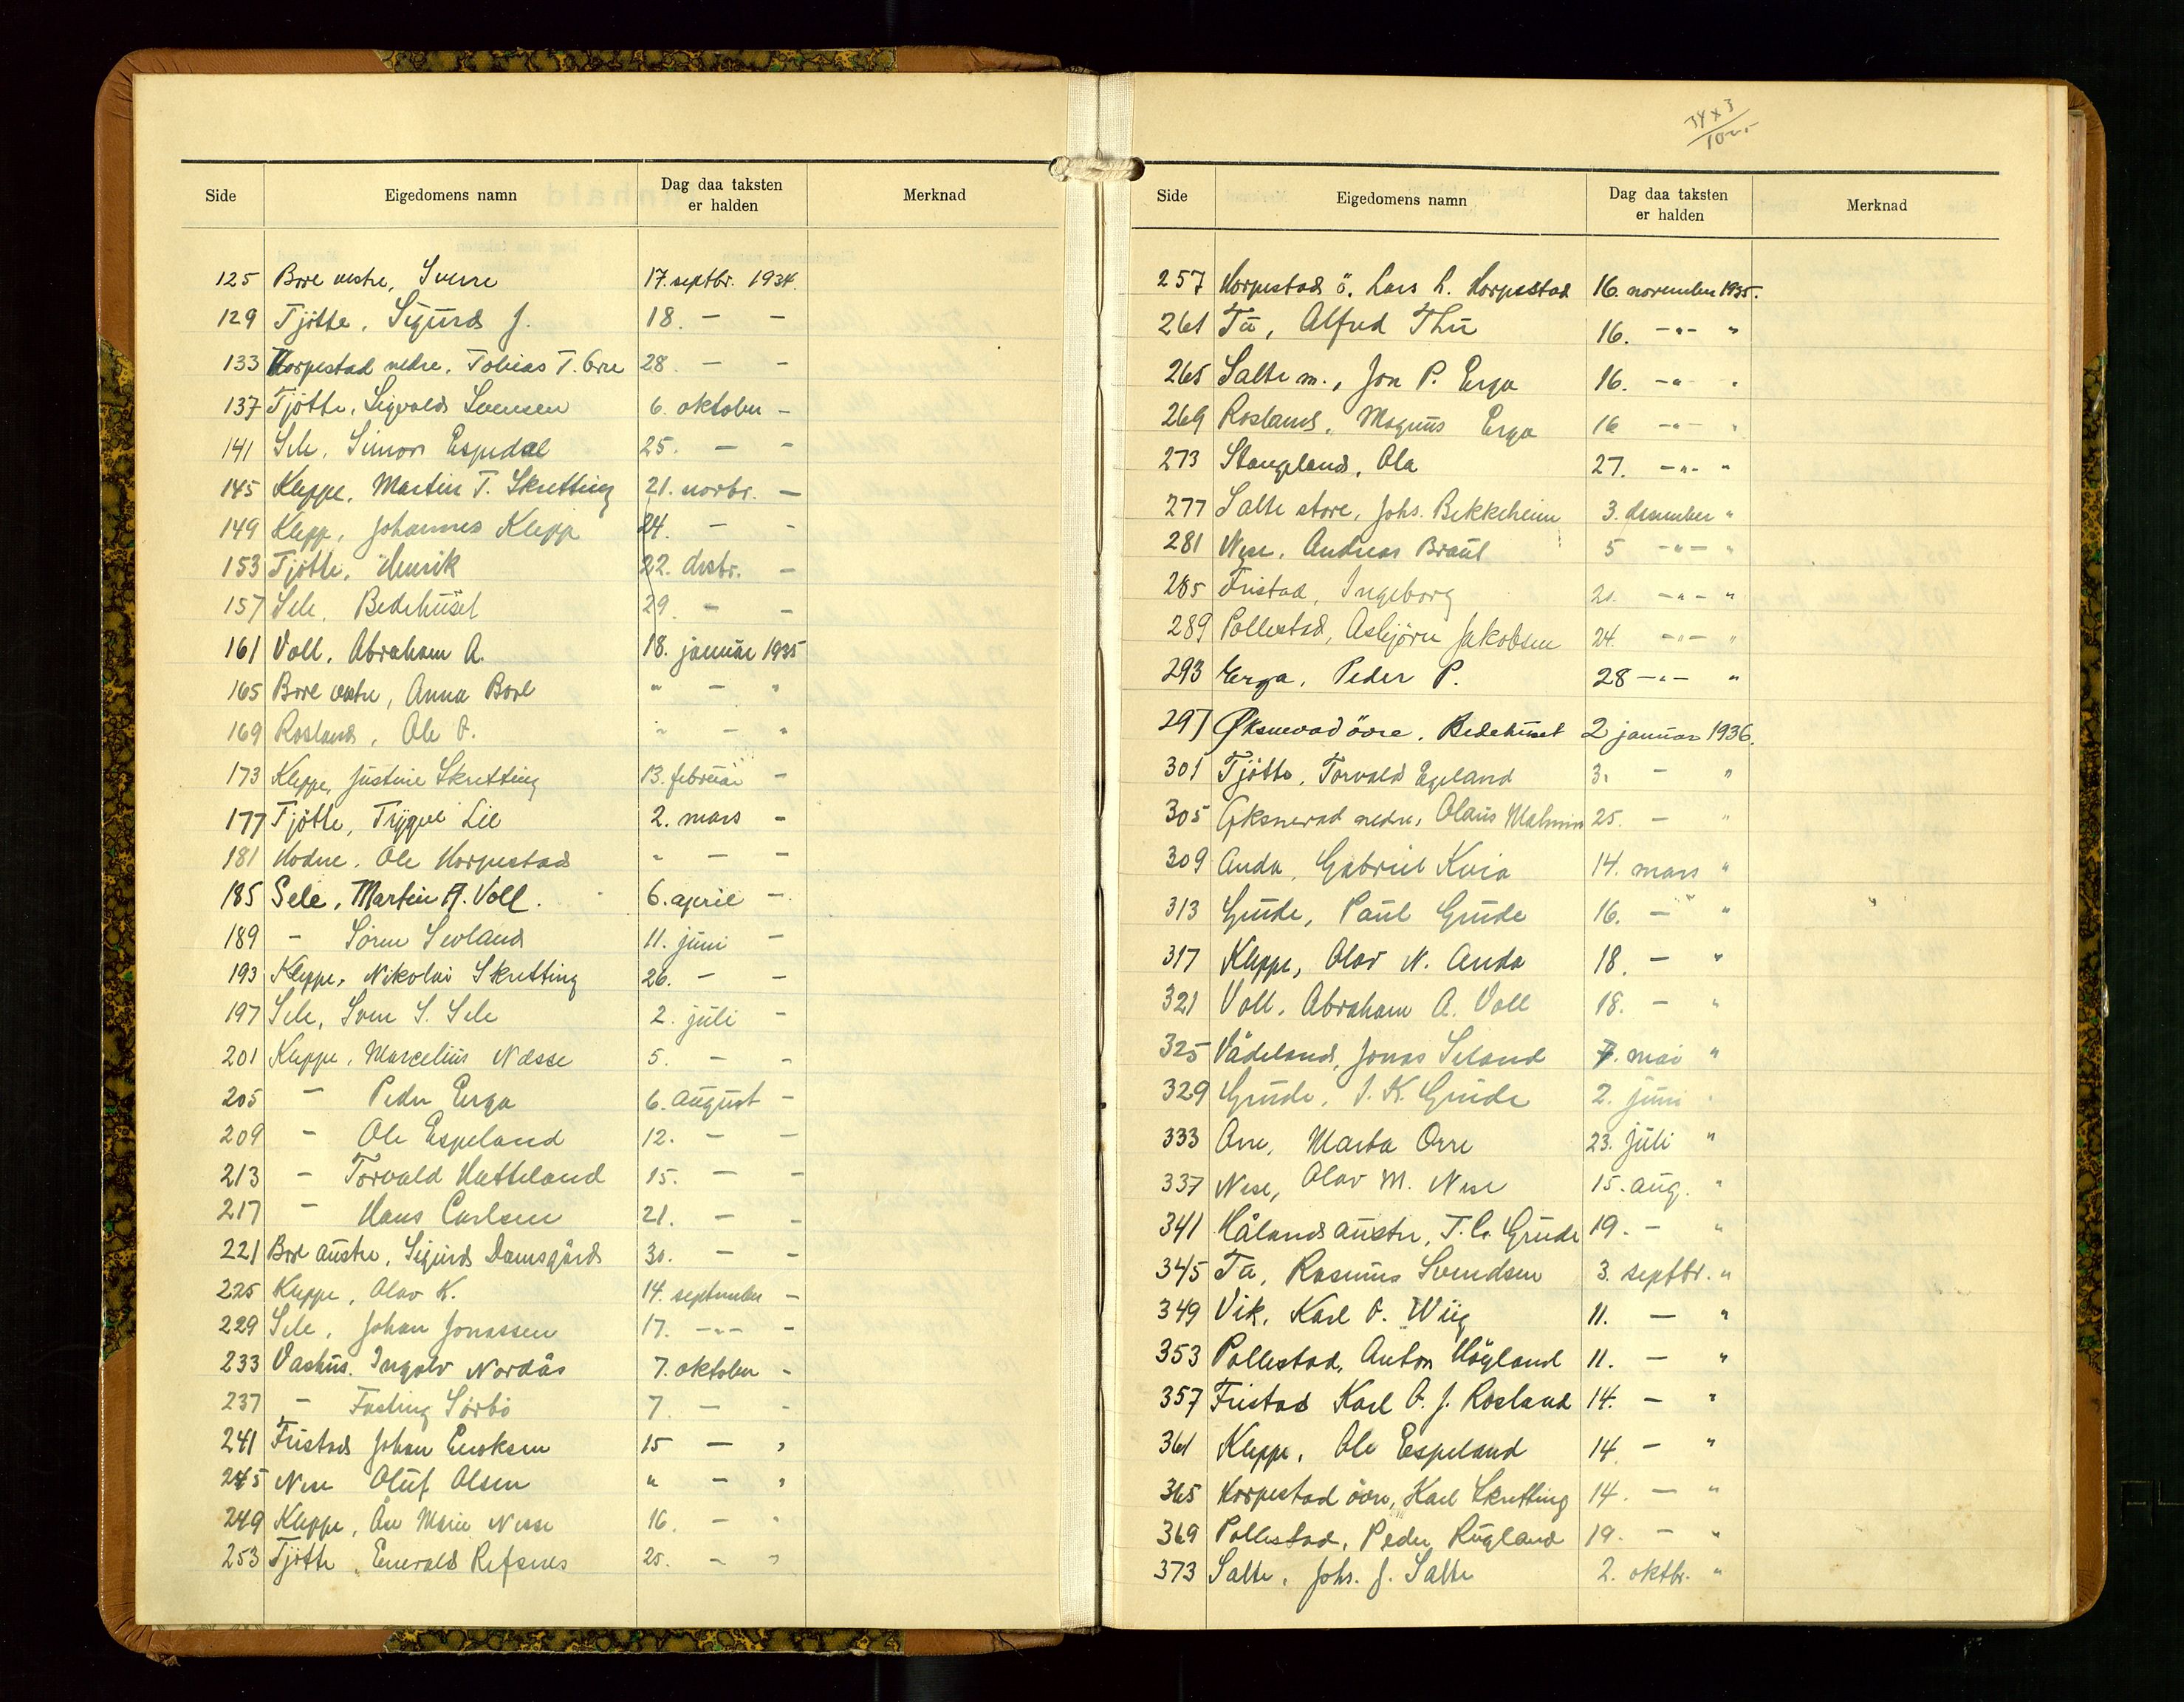 Side Eigedomens namn Dag daa taksten er halden Merknad
125 Bore vestre, Sverre 17. septbr. 1934.
129 Tjøtta, Sigurd J. 18. — —
133 Horpestad nedre, Tobias T. Orre 28. — —
137 Tjøtta, Sigvald Svensen 6. oktober —
141 Sele, Simon Espedal 25. — —
145 Kleppe, Martin T. Skretting 21. novbr. —
149 Klepp, Johannes Klepp 24. — —
153 Tjøtta, Henrik 22. desbr. —
157 Sele, Bedehuset 29. — —
161 Voll, Abraham A. 18. januar 1935
165 Bore vestre, Anna Bore " — "
169 Rosland, Ole O. " — "
173 Kleppe, Justine Skretting 13. februar —
177 Tjøtta, Trygve Lie 2. mars —
181 Hodne, Ole Horpestad " — —
185 Sele, Martin A. Voll. 6. april —
189 — Sören Sevland 11. juni —
193 Kleppe, Nikolai Skretting 26. — —
197 Sele, Sven S. Sele 2. juli —
201 Kleppe, Marcelius Næsse 5. — —
205 — Peder Erga 6. august —
209 — Ole Espeland 12. — —
213 — Torvald Hatteland 15. — —
217 — Hans Carlsen 21. — —
221 Bore austre, Sigurd Damsgård 30. — —
225 Kleppe, Olav K. 14. september —
229 Sele, Johan Jonassen 17. —"— —
233 Vashus. Ingolv Nordås 7. oktober —
237 — Fasting Sörbö 7. — —
241 Fristad Johan Enoksen 15 — "
245 Nese Oluf Olsen " — "
249 Kleppe, Åse Marie Nesse 16. — "
253 Tjøtta, Enevald Refsnes 25. — "
34 x 3
Side Eigedomens namn Dag daa taksten er halden Merknad
257 Horpestad ö. Lars L. Horpestad 16. november 1935.
261 Tu, Alfred Thu 16. —"— "
265 Salte m., Jon P. Erga 16. —"— "
269 Rosland, Magnus Erga 16 —"— "
273 Stangeland, Ola 27. —"— "
277 Salte store, Johs. Bekkeheim 3. desember "
281 Nese, Andreas Braut 5 —"— "
285 Fristad, Ingeborg 21. —"— "
289 Pollestad, Asbjörn Jakobsen 24. —"— "
293 Erga, Peder P. 28 —"— "
297 Øksnevad övre, Bedehuset 2 januar 1936.
301 Tjøtta, Torvald Egeland 3. — "
305 Øksnevad nedre, Olaus Malmin 25. — "
309 Anda, Gabriel Kvia 14. mars "
313 Grude, Paul Grude 16. — "
317 Kleppe, Olav N. Anda 18. — "
321 Voll, Abraham A. Voll 18. — "
325 Vådeland, Jonas Seland 7. mai "
329 Grude, J. K. Grude 2. juni "
333 Orre, Marta Orre 23. juli "
337 Nese, Olav M. Nese 15. aug. "
341 Håland austre, T. C. Grude 19. — "
345 Tu, Rasmus Svendsen 3. septbr. "
349 Vik, Karl O. Wiig 11. — "
353 Pollestad, Anton Högland 11. — "
357 Fristad Karl O. J. Rosland 14. — "
361 Kleppe, Ole Espeland 14. — "
365 Horpestad övre, Karl Skretting 14. — "
369 Pollestad, Peder Rugland 19. — "
373 Salte, Johs. J. Salte 2. oktbr. "